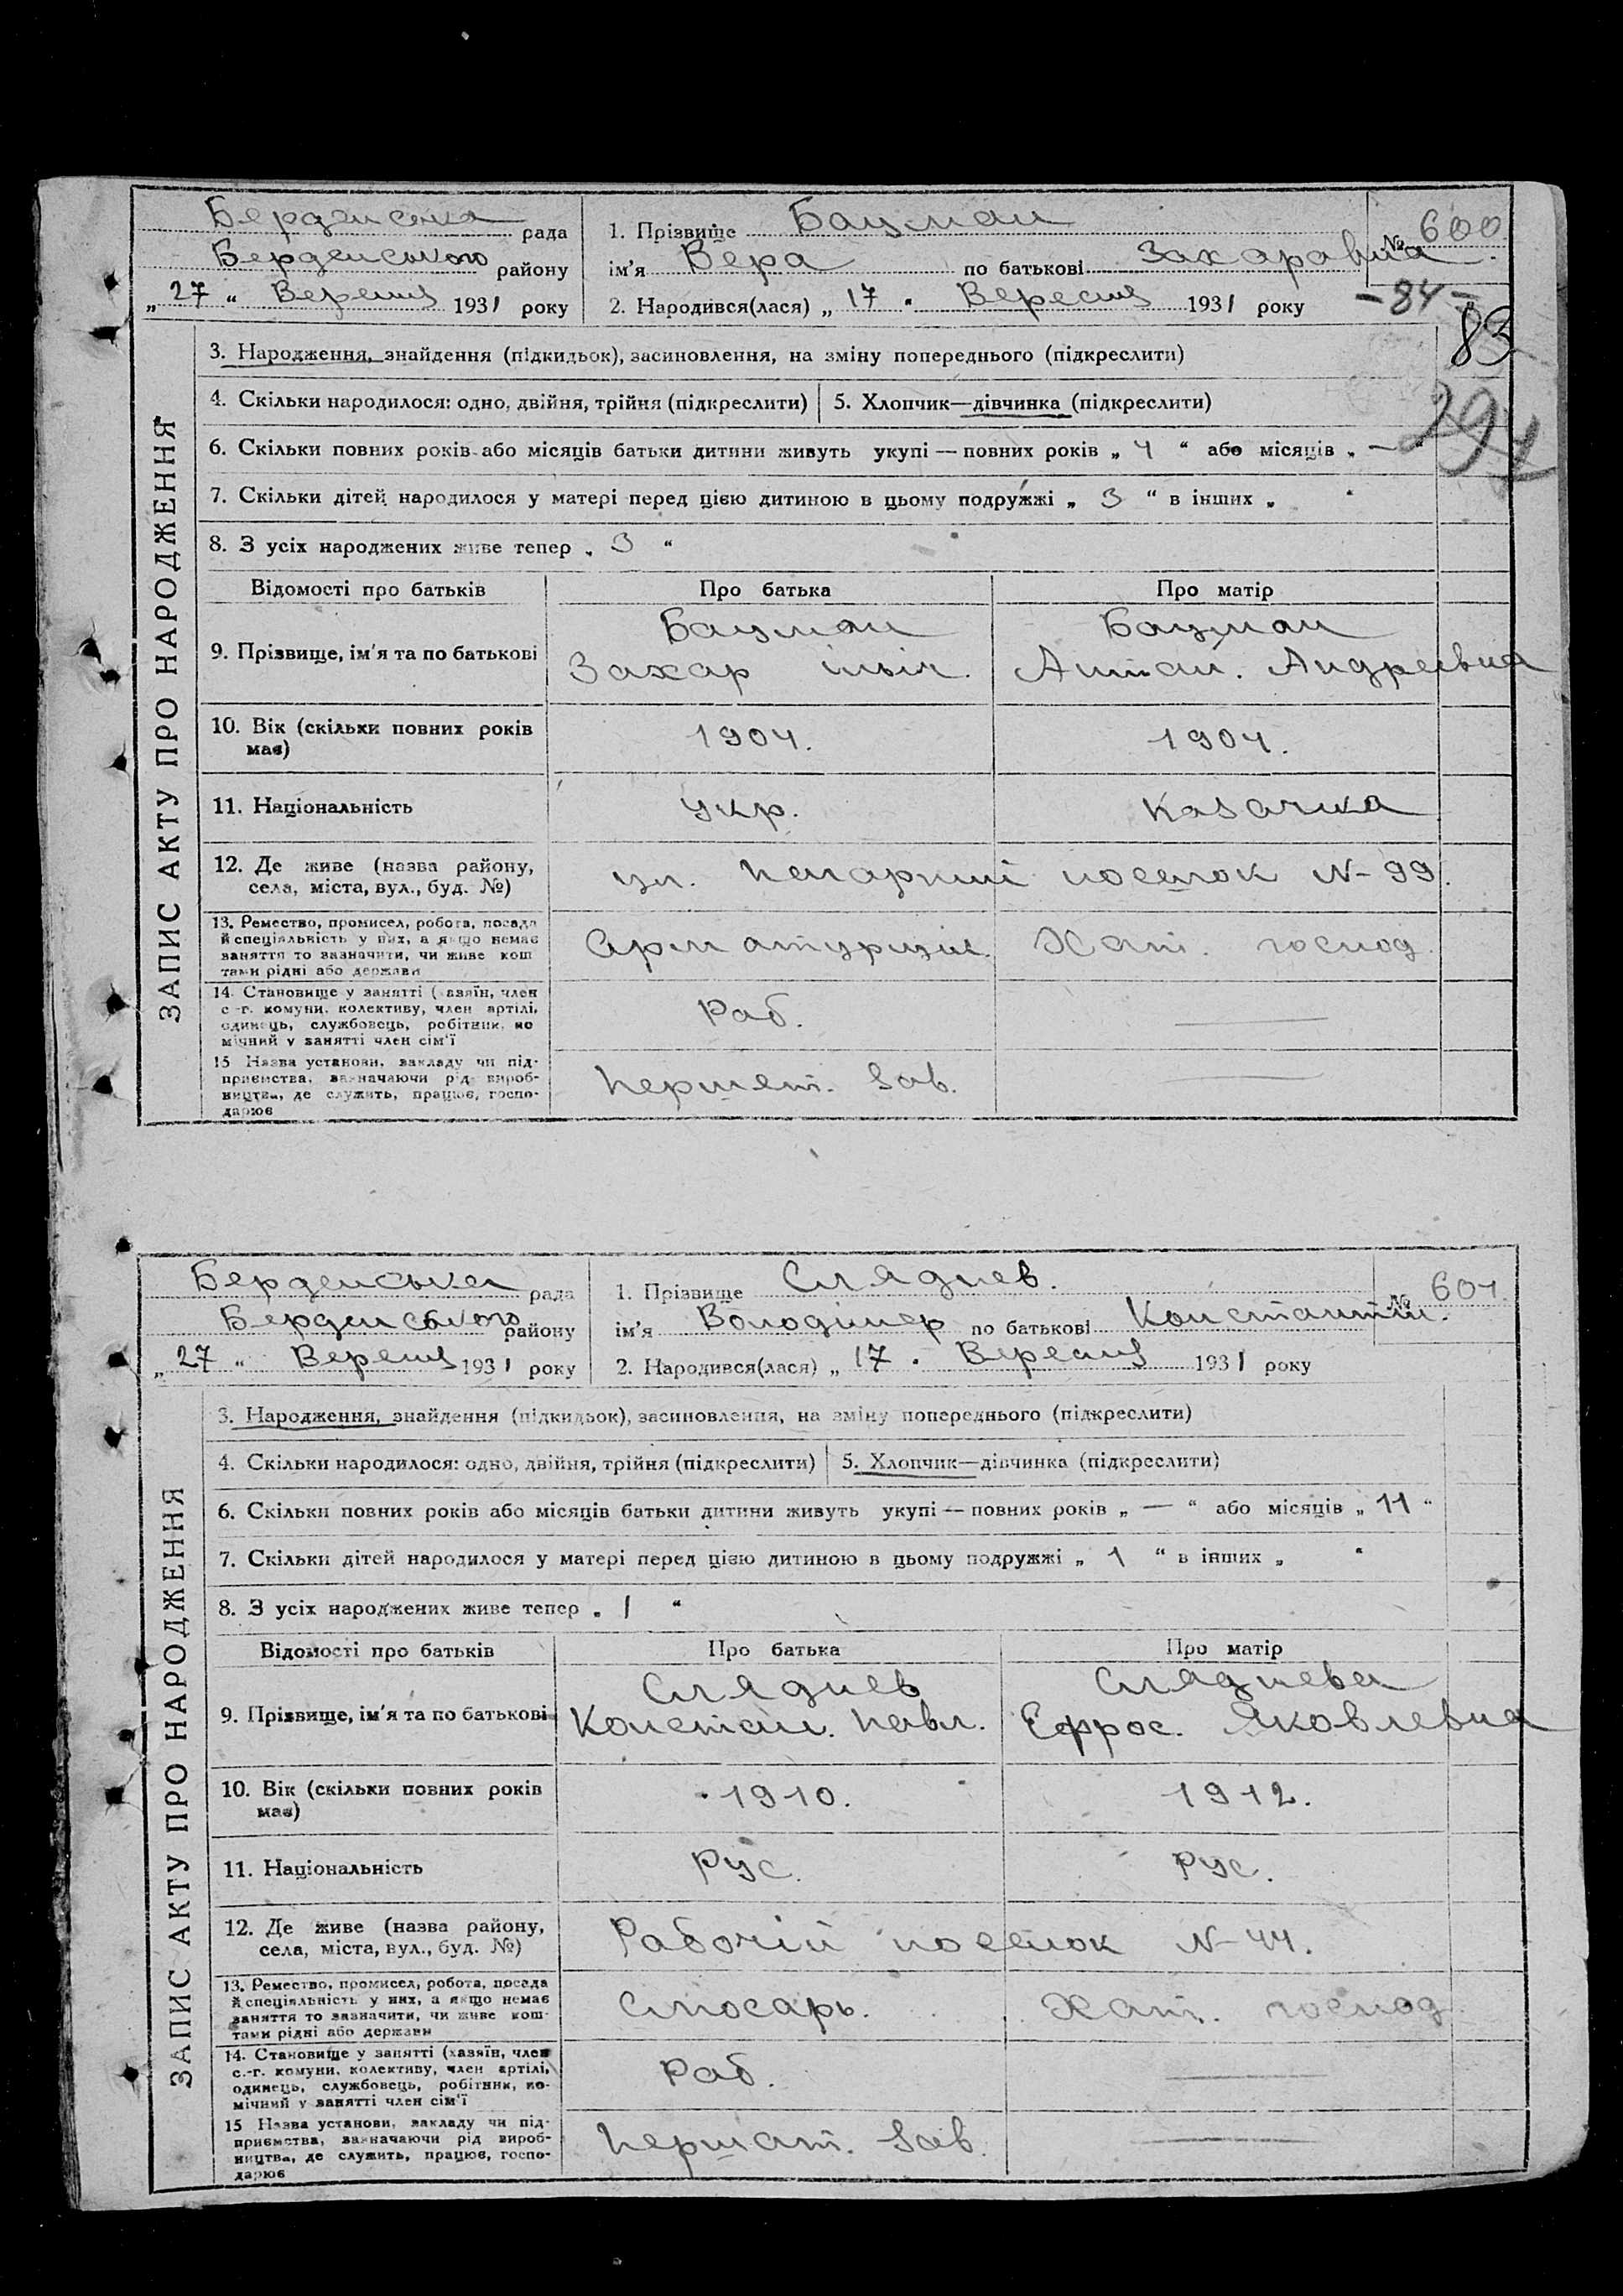 Берденська рада
Берденського району
„27“ Вересня 1931 року
1. Прізвище Бацман
ім'я Вера по батькові Захаравна
2. Народився(лася) „17“ Вересня 1931 року
№ 600
-84-
83
291
ЗАПИС АКТУ ПРО НАРОДЖЕННЯ
3. Народження, знайдення (підкидьок), засиновлення, на зміну попереднього (підкреслити)
4. Скільки народилося: одно, двійня, трійня (підкреслити) 5. Хлопчик—дівчинка (підкреслити)
6. Скільки повних років або місяців батьки дитини живуть укупі — повних років „ 4 “ або місяців „ — “
7. Скільки дітей народилося у матері перед цією дитиною в цьому подружжі „ 3 “ в інших „ “
8. З усіх народжених живе тепер „ 3 “
Відомості про батьків Про батька Про матір
9. Прізвище, ім'я та по батькові
Бацман
Захар
Бацман
Андреевна
10. Вік (скільки повних років має) 1904. 1904.
11. Національність укр. Казачка
12. Де живе (назва району, села, міста, вул., буд. №)
посьолок N-99.
13. Ремество, промисел, робота, посада
й спеціальність у них, а якщо немає
заняття то зазначити, чи живе кош
тами рідні або держави
Арматурщик. Хат. господ.
14. Становище у занятті (хазяїн, член
с.-г. комуни, колективу, член артілі,
одинець, службовець, робітник, по
мічний у занятті член сім'ї
Раб. —
15 Назва установи, закладу чи під-
приємства, зазначаючи рід вироб-
ництва, де служить, працює, госпо-
дарює
Першет. Зав. —
Берденська рада
Берденського району
„27“ Вересня 1931 року
1. Прізвище Сляднев.
ім'я Володімер по батькові Константин.
2. Народився(лася) „17“ Вересня 1931 року
№ 601
ЗАПИС АКТУ ПРО НАРОДЖЕННЯ
3. Народження, знайдення (підкидьок), засиновлення, на зміну попереднього (підкреслити)
4. Скільки народилося: одно, двійня, трійня (підкреслити) 5. Хлопчик—дівчинка (підкреслити)
6. Скільки повних років або місяців батьки дитини живуть укупі — повних років „ — “ або місяців „ 11 “
7. Скільки дітей народилося у матері перед цією дитиною в цьому подружжі „ 1 “ в інших „ “
8. З усіх народжених живе тепер „ 1 “
Відомості про батьків Про батька Про матір
9. Прізвище, ім'я та по батькові
Сляднев
Констан. Павл.
Сляднева
Ефрос. Яковлевна
10. Вік (скільки повних років має) 1910. 1912.
11. Національність Рус. Рус.
12. Де живе (назва району, села, міста, вул., буд. №)
Рабочій посьолок N-44.
13. Ремество, промисел, робота, посада
й спеціальність у них, а якщо немає
заняття то зазначити, чи живе кош-
тами рідні або держави
Слюсарь. Хат. господ.
14. Становище у занятті (хазяїн, член
с.-г. комуни, колективу, член артілі,
одинець, службовець, робітник, по-
мічний у занятті член сім'ї
Раб. —
15 Назва установи, закладу чи під-
приємства, зазначаючи рід вироб-
ництва, де служить, працює, госпо-
дарює
Першат. Зав. —